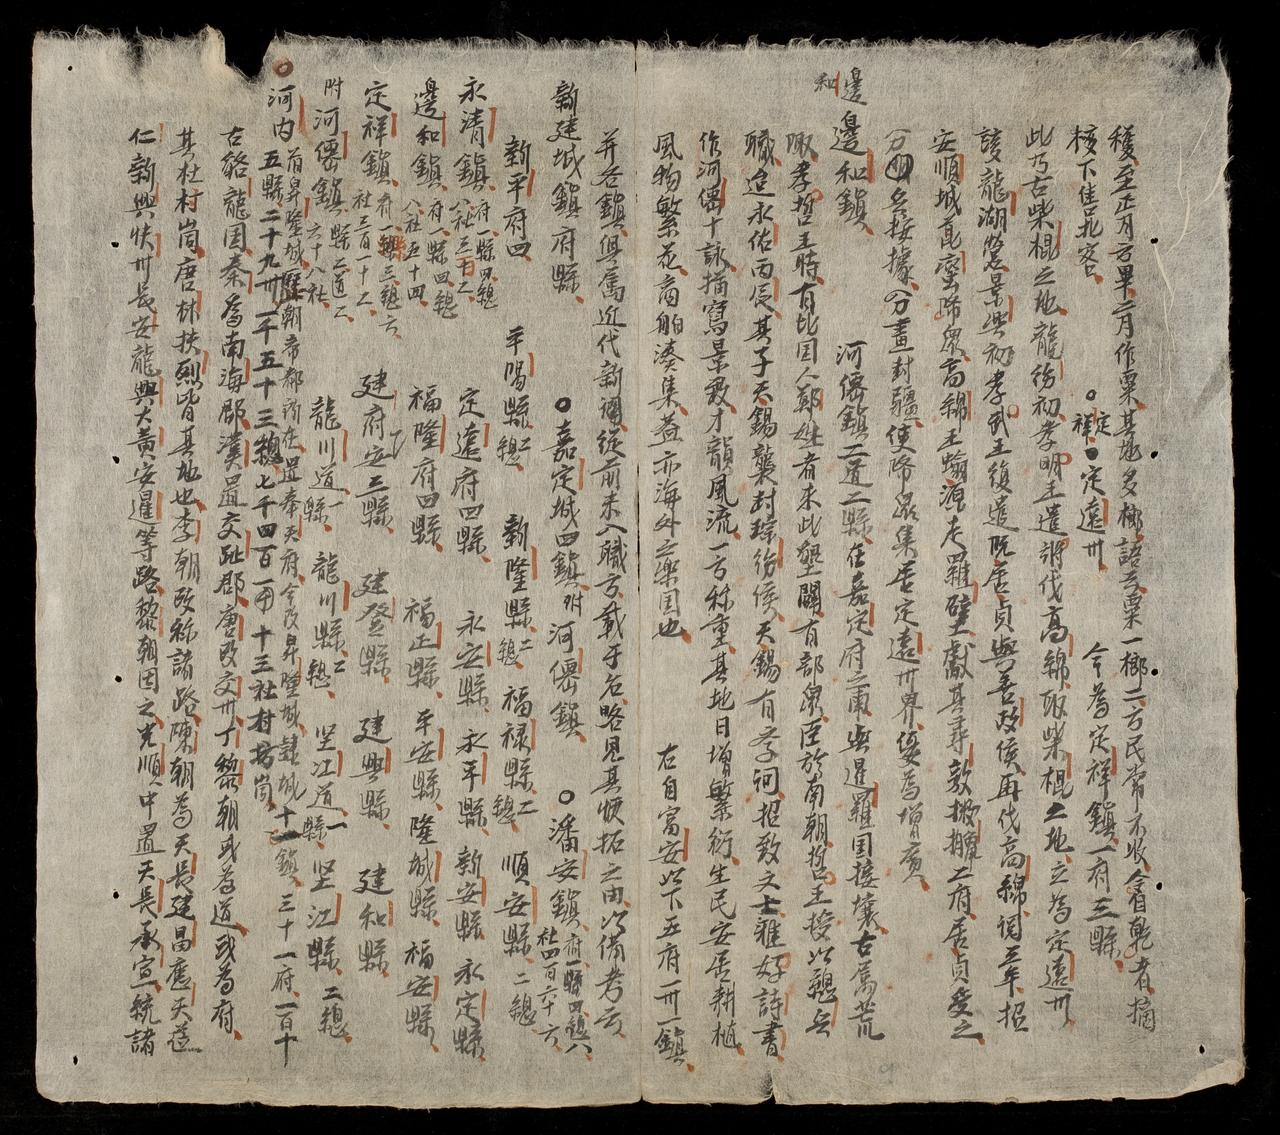 穫至正月方畢二月作粟其地多榔語云粟一榔二方民常不收會乾者摘
核下佳茈客
定祥
定遠州
今為定祥鎮一府三縣
此乃古柴棍之地龍彷初孝明王遣將伐高綿取柴棍之地立為定遠州
該龍湖營景興初孝武王復遣阮居貞與善政侯再伐高綿調三年招
安順城崑蠻降眾高綿王翰源走羅壁獻其尋敦撫腆二府居貞受之
分名按據分畫封疆使降眾集居定遠州界後為增廣
邊和
邊和鎮
河僊鎮二道二縣在嘉定府之南與暹羅国接壤古屬荒
陬孝哲王時有北国人鄭姓者來此墾闢有部眾臣於南朝哲王授以總兵
職迨永佑丙辰其子天錫襲封琮彷侯天錫有孝祠招致文士雅好詩書
作河僊十詠描寫景致才韻風流一方称重其地日增繁衍生民安居耕植
風物繁花商舶湊集蓋亦海外之樂国也
右自富安以下五府一州一鎮
并各鎮俱屬近代新調從前未入職方載于右略見其恢拓之由以備考云
新建城鎮府縣
嘉定城四鎮附河僊鎮
潘安鎮府一縣四總八社四百六十六
新平府四
平陽縣二總
新隆縣二總
福祿縣二總
順安縣二總
永清鎮府一縣四總八社三百二
定遠府四縣
永安縣
永平縣
新安縣
永定縣
邊和鎮府一縣四總八社五十四
福隆府四縣
福正縣
平安縣
隆城縣
福安縣
定祥鎮府一縣三總六社三百一十二
建安府三縣
建登縣
建興縣
建和縣
附河僊鎮縣二道二六十八社
龍川道一縣
龍川縣二總
坚江道一縣
坚江縣二總
河内前昇隆城歷朝帝都所在置奉天府今改昇隆城隸城十一鎮三十一府一百十
五縣二十九州一千五十三總七千四百一十三社村坊峝
古貉龍国秦為南海郡漢置交趾郡唐改交州丁黎朝或為道或為府
其社村峝唐林扶烈皆其地也李朝改称諸路陳朝為天長建昌應天莅
仁新興快州長安龍興大黃安暹等路黎朝因之光順中置天長承宣統諸